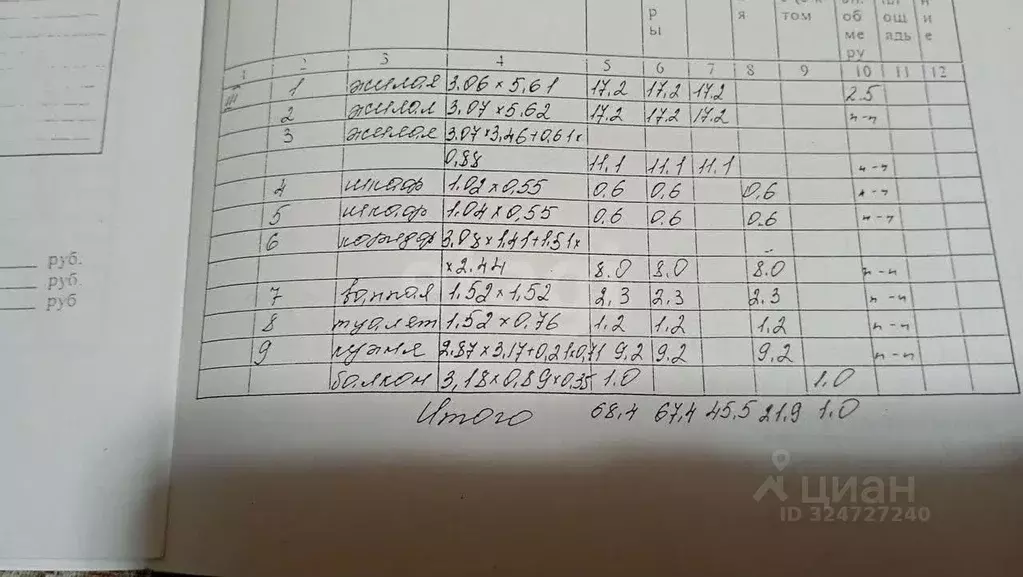 р
ы
я
том
об
ме
ру
ощ
адь
и
е
1 2 3 4 5 6 7 8 9 10 11 12
1 жилая 3.06×5,61 17,2 17,2 17,2 2.5
2 жилая 3,07×5,62 17.2 17.2 17,2 "-"
3 жилая 3,07×3,46+0,61×
0,88 11,1 11.1 11.1 "-"
4 шкаф 1.02×0,55 0,6 0,6 0,6 "-"
5 шкаф 1.04×0,55 0,6 0,6 0.6 "-"
6 коридор 3,08×1,41+1,51×
×2.44 8.0 8.0 8.0 "-"
7 ванная 1,52×1,52 2,3 2,3 2,3 "-"
8 туалет 1,52×0,76 1,2 1,2 1,2 "-"
9 кухня 2,87×3,17+0,21×0,71 9,2 9.2 9.2 "-"
балкон 3,18×0,89×0,35 1.0 1.0
Итого 68,4 67,4 45,5 21,9 1.0
руб.
руб.
руб
циан
ID 324727240